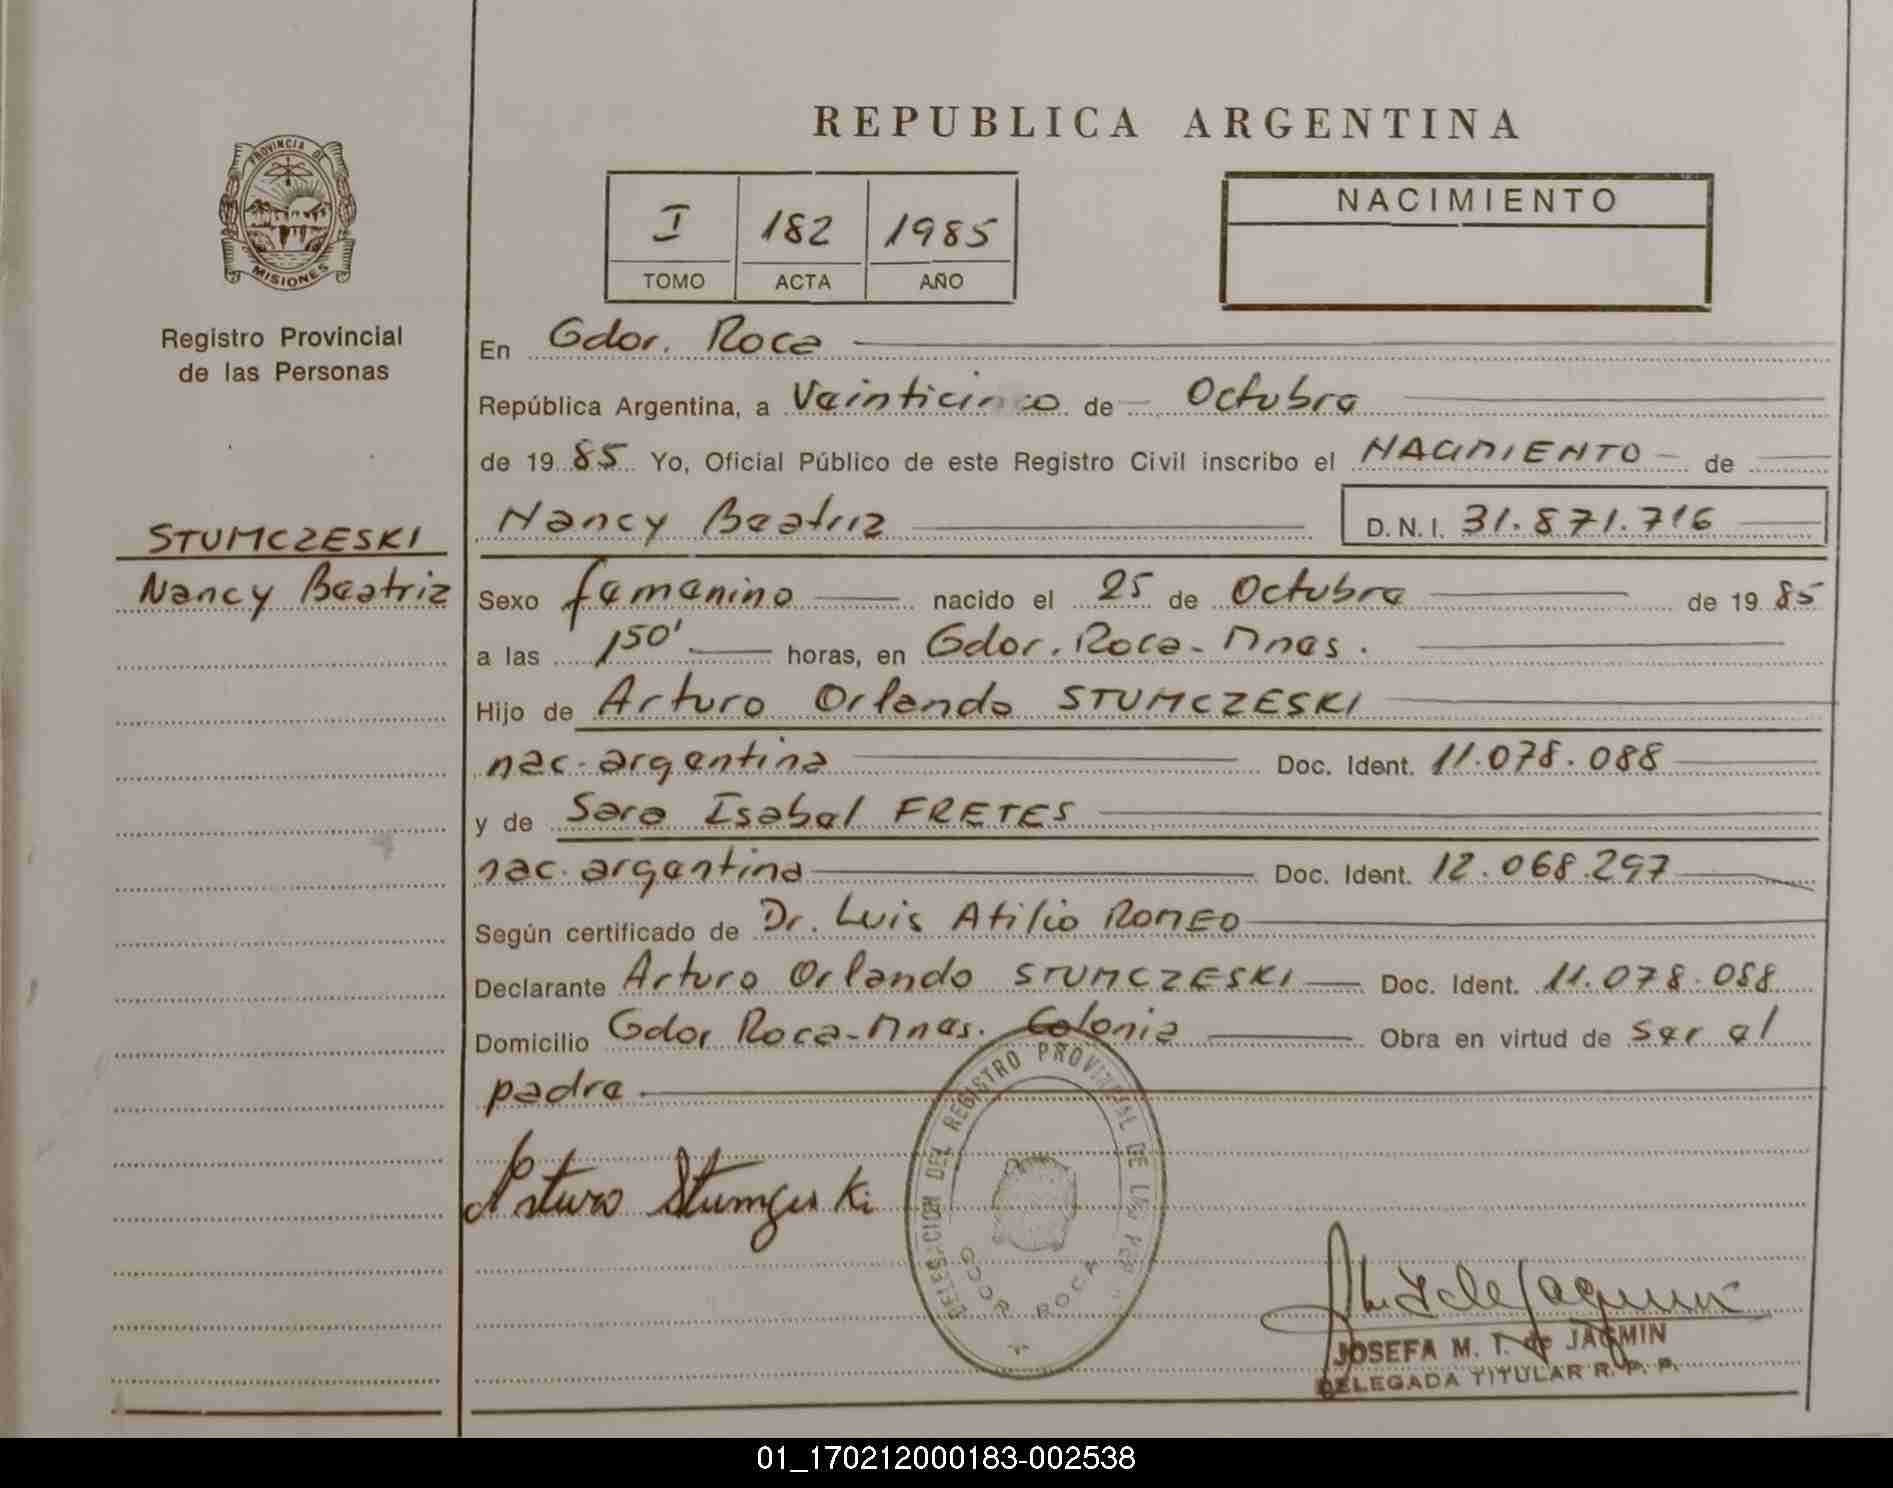 REPUBLICA ARGENTINA
PROVINCIA DE
MISIONES
Registro Provincial
de las Personas
I 182 1985
TOMO ACTA AÑO
NACIMIENTO
STUMCZESKI
Nancy Beatriz
En Gdor. Roca
República Argentina, a Veinticinco de Octubre
de 1985 Yo, Oficial Público de este Registro Civil inscribo el NACIMIENTO de
Nancy Beatriz D.N.I. 31.871.716
Sexo femenino nacido el 25 de Octubre de 1985
a las 150' horas, en Gdor. Roca - Mnes.
Hijo de Arturo Orlando STUMCZESKI
nac. argentina Doc. Ident. 11.078.088
y de Sara Isabel FRETES
nac. argentina Doc. Ident. 12.068.297
Según certificado de Dr. Luis Atilio ROMEO
Declarante Arturo Orlando STUMCZESKI Doc. Ident. 11.078.088
Domicilio Gdor Roca - Mnes. Colonia Obra en virtud de ser el
padre
DELEGACION DEL REGISTRO PROVINCIAL DE LAS PER
GDOR ROCA
Arturo
JOSEFA M. T. de JAGMIN
DELEGADA TITULAR R. P. P.
01_170212000183-002538